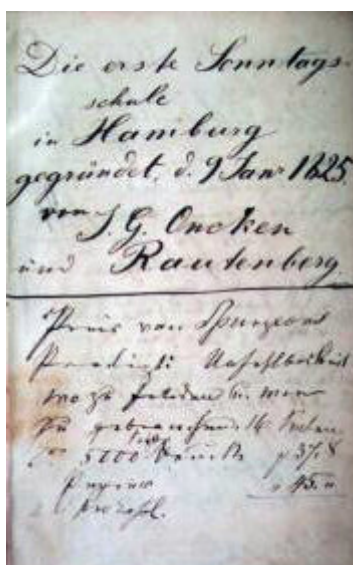 Die erste Sonntags-
schule
in Hamburg
gegründet d. 9 Jan. 1825.
von J. G. Oncken
und Rautenberg
Preis von Spurgeons
Predigt: Unfehlbarkeit
wo zu finden u. wie
zu gebrauchen. 16 Seiten
5000
Papier